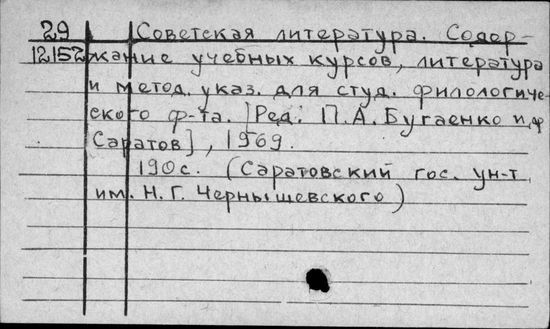 29 Советская литература. Содер-
12152 жание учебных курсов, литература
и метод. указ. для студ. филологиче-
ского ф-та. [Ред. П.А. Бугаенко и др.
Саратов], 1969.
190с. (Саратовский гос. ун-т
им. Н.Г. Чернышевского)